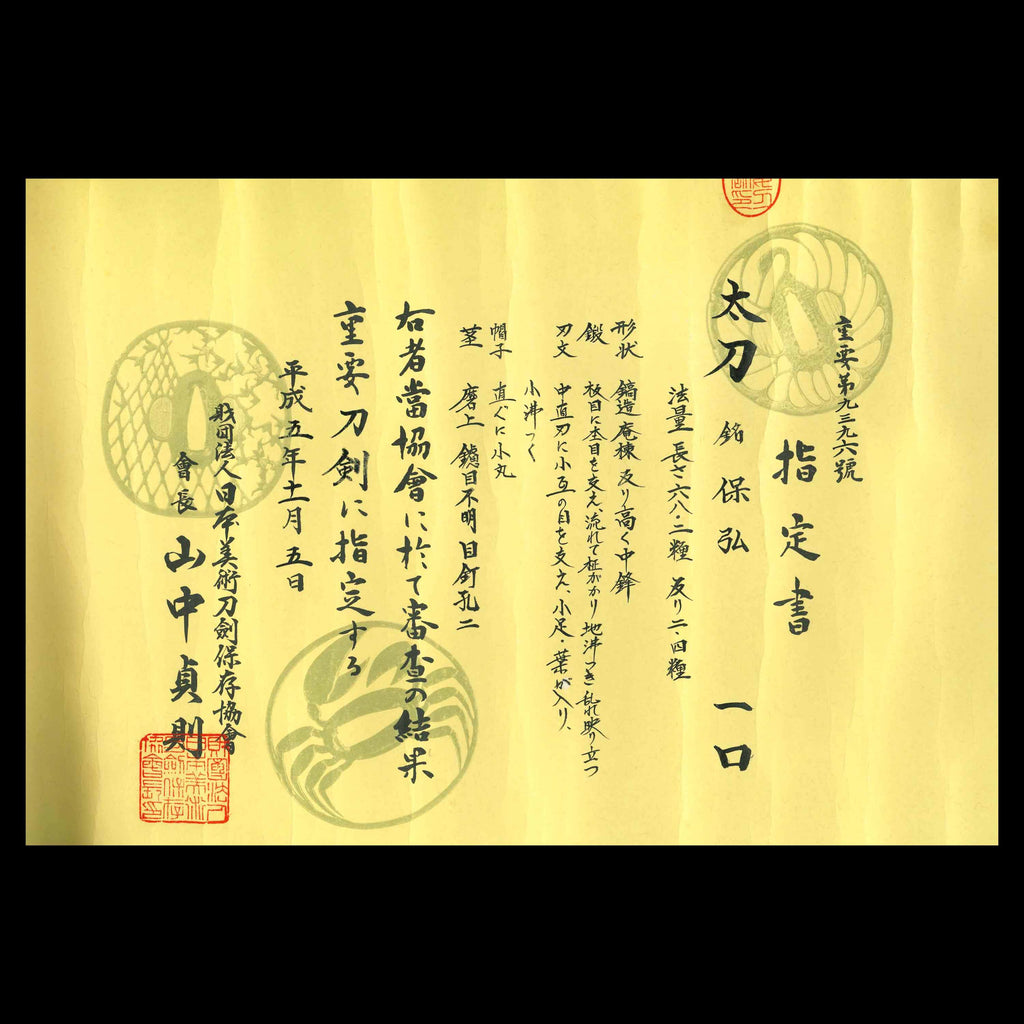 重要第九三九六號
指定書
太刀 銘 保弘 一口
法量 長さ六八・二糎 反り二・四糎
形状 鎬造 庵棟 反り高く中鋒
鍛 板目に杢目を交え、流れて柾がかり 地沸つき乱れ映り立つ
刃文 中直刃に小互の目を交え、小足・葉が入り、
小沸つく
帽子 直ぐに小丸
茎 磨上 鑢目不明 目釘孔二
右者當協會に於て審査の結果
重要刀剣に指定する
平成五年十一月五日
財団法人日本美術刀劍保存協會
會長 山中貞則